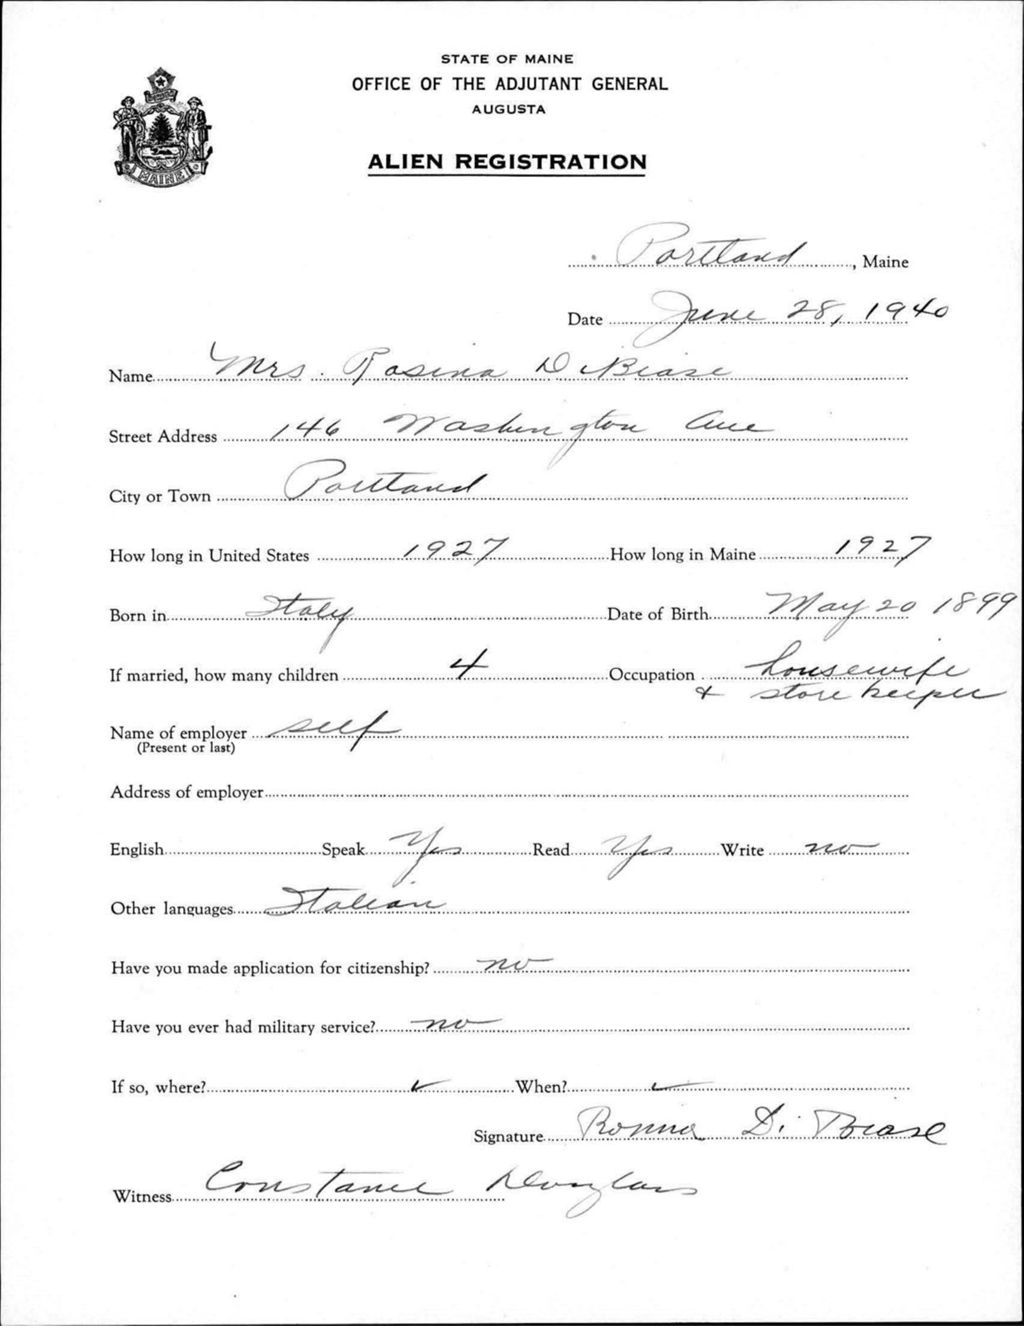 STATE OF MAINE
OFFICE OF THE ADJUTANT GENERAL
AUGUSTA
MAINE
ALIEN REGISTRATION
Portland, Maine
Date June 28, 1940
Name Mrs. Rosina DiBiase
Street Address 146 Washington Ave
City or Town Portland
How long in United States 1927 How long in Maine 1927
Born in Italy Date of Birth May 20 1899
If married, how many children 4 Occupation housewife
& store keeper
Name of employer self
(Present or last)
Address of employer
English Speak Yes Read Yes Write no
Other languages Italian
Have you made application for citizenship? no
Have you ever had military service? no
If so, where? ✓ When? ✓
Signature Rosina Di Biase
Witness Constance Douglass